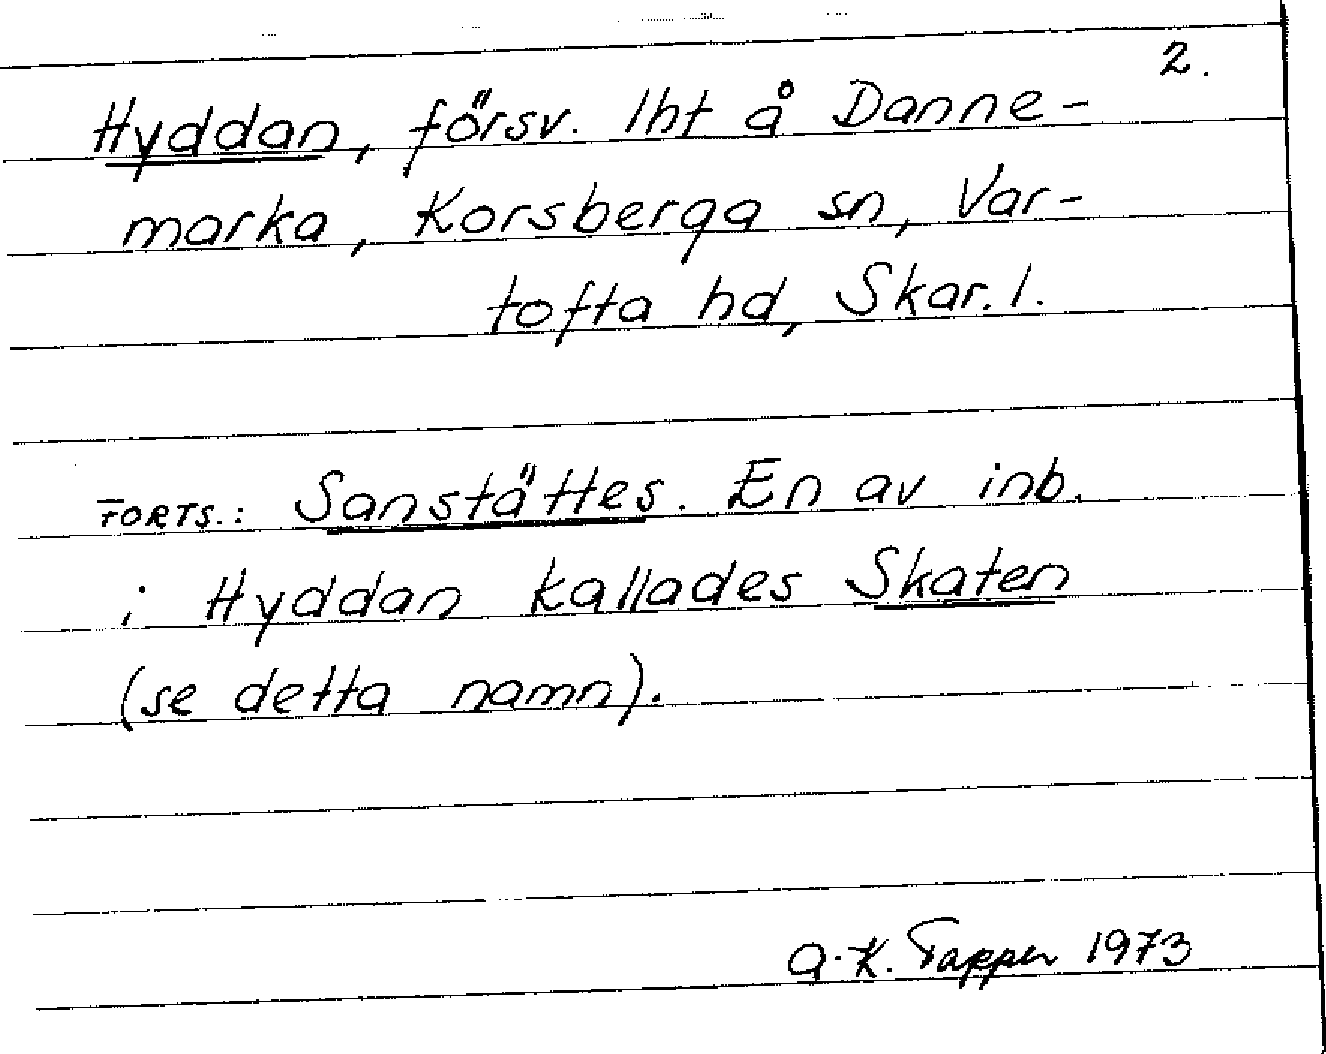 2.
Hyddan, försv. lht å Danne-
marka, Korsberga sn, Var-
tofta hd, Skar. l.
FORTS.: Sanstättes. En av inb.
i Hyddan kallades Skaten
(se detta namn).
A.-K. Tapper 1973